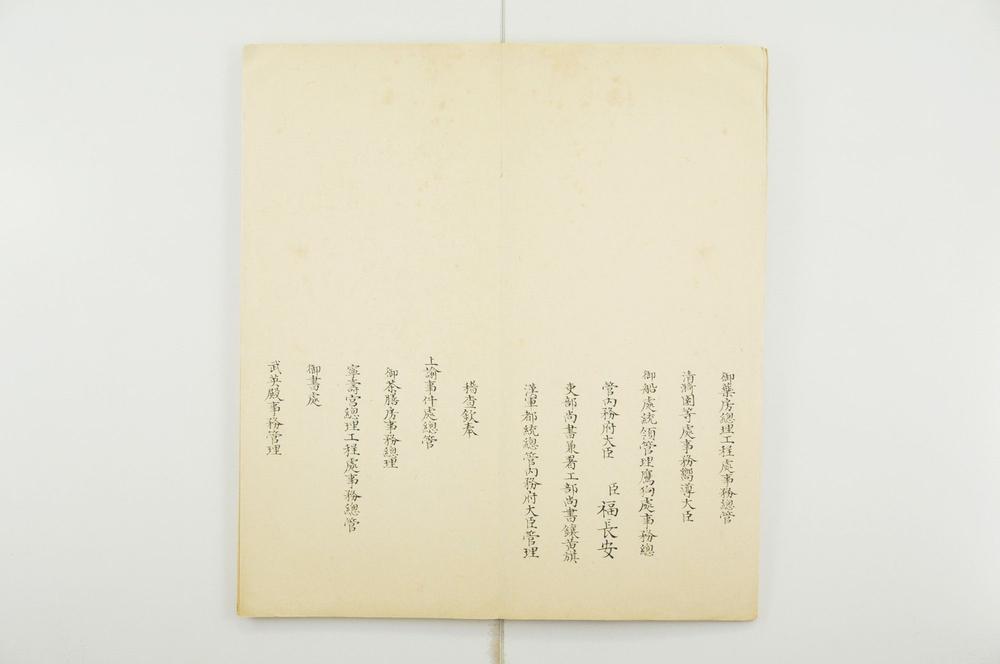 御藥房總理工程處事務總管
清漪園等處事務嚮導大臣
御船處統領管理鷹狗處事務總
管內務府大臣 臣 福長安
吏部尚書兼署工部尚書鑲黃旗
漢軍都統總管內務府大臣管理
稽查欽奉
上諭事件處總管
御茶膳房事務總理
寧壽宮總理工程處事務總管
御書處
武英殿事務管理